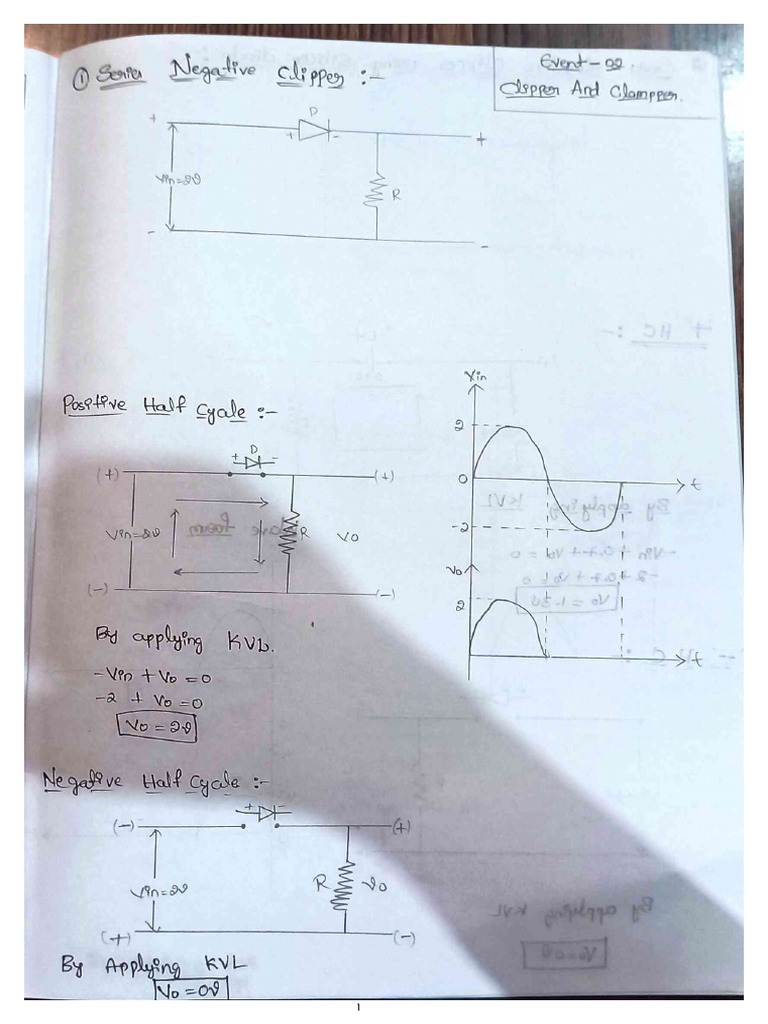 Event-02
Clipper And Clampper.
① Series Negative Clipper :-
D
+ + - +
Vin=2V
R
- -
Positive Half Cycle :-
D
+ -
(+) (+)
Vin=2V R Vo
(-) (-)
By applying KVL.
-Vin + Vo = 0
-2 + Vo = 0
Vo = 2V
Vin
2
0 t
-2
Vo
2
t
Negative Half Cycle :-
+ -
(-) (+)
Vin=2V R Vo
(+) (-)
By Applying KVL
Vo = 0V
1